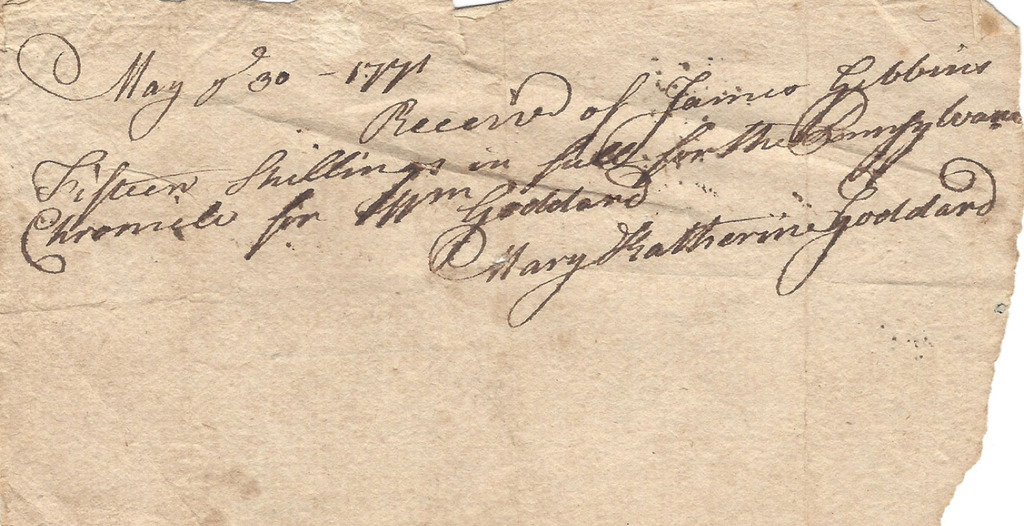 May ye 30 - 1771
Receivd of James Gibbins
Fifteen Shillings in full for the Pennsylvania
Chronicle for Wm Goddard
Mary Katherine Goddard